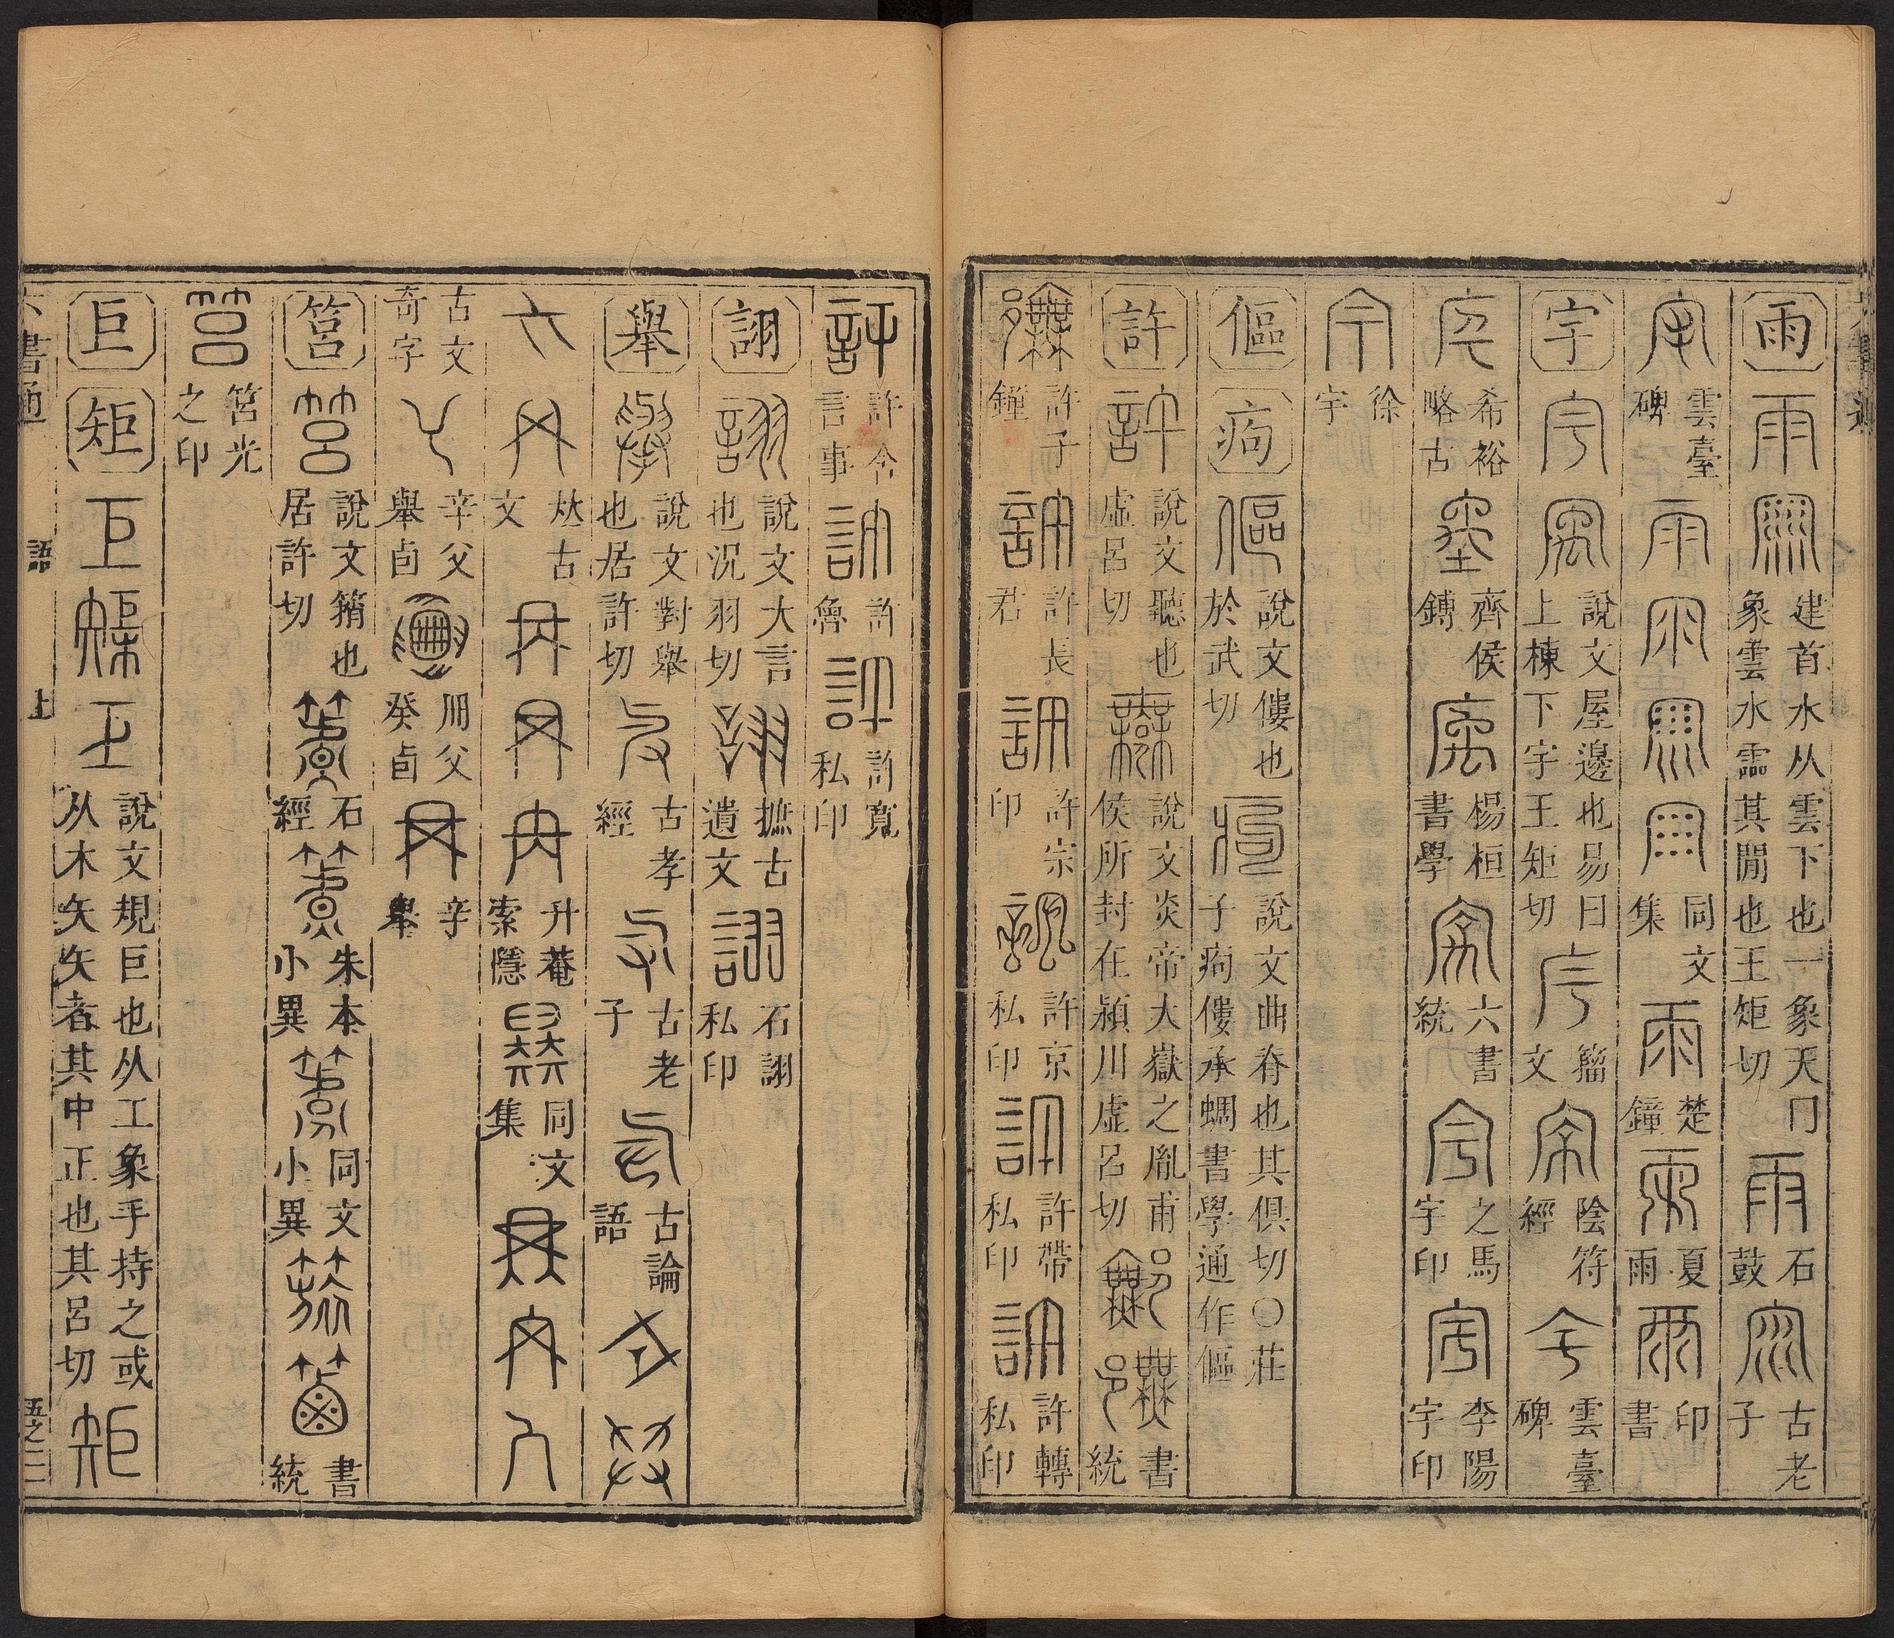 雨 建首水从雲下也一象天冂象雲水霝其閒也王矩切 石鼓 古老子
雲臺碑 同文集 楚鐘 夏雨 印書
宇 說文屋邊也易曰上棟下宇王矩切 籀文 陰符經 雲臺碑
希裕略古 齊侯鎛 楊桓書學 六書統 之馬宇印 李陽宇印
徐宇
傴 痀 說文僂也於武切 說文曲脊也其俱切〇莊子痀僂承蜩書學通作傴
許 說文聽也虛呂切 說文炎帝大嶽之胤甫侯所封在潁川虛呂切 書統
許子鐘 許長君 許宗印 許京私印 許帶私印 許轉私印
許令言事 許魯 許寬私印
詡 說文大言也況羽切 摭古遺文 石詡私印
舉 說文對舉也居許切 古孝經 古老子 古論語
古文 升菴索隱 同文集
古文奇字 辛父舉卣 父癸卣 辛舉
筥 說文䈰也居許切 石經 朱本小異 同文小異 書統
筥光之印
巨 矩 說文規巨也从工象手持之或从木矢矢者其中正也其呂切
六書通 語 上 五之二